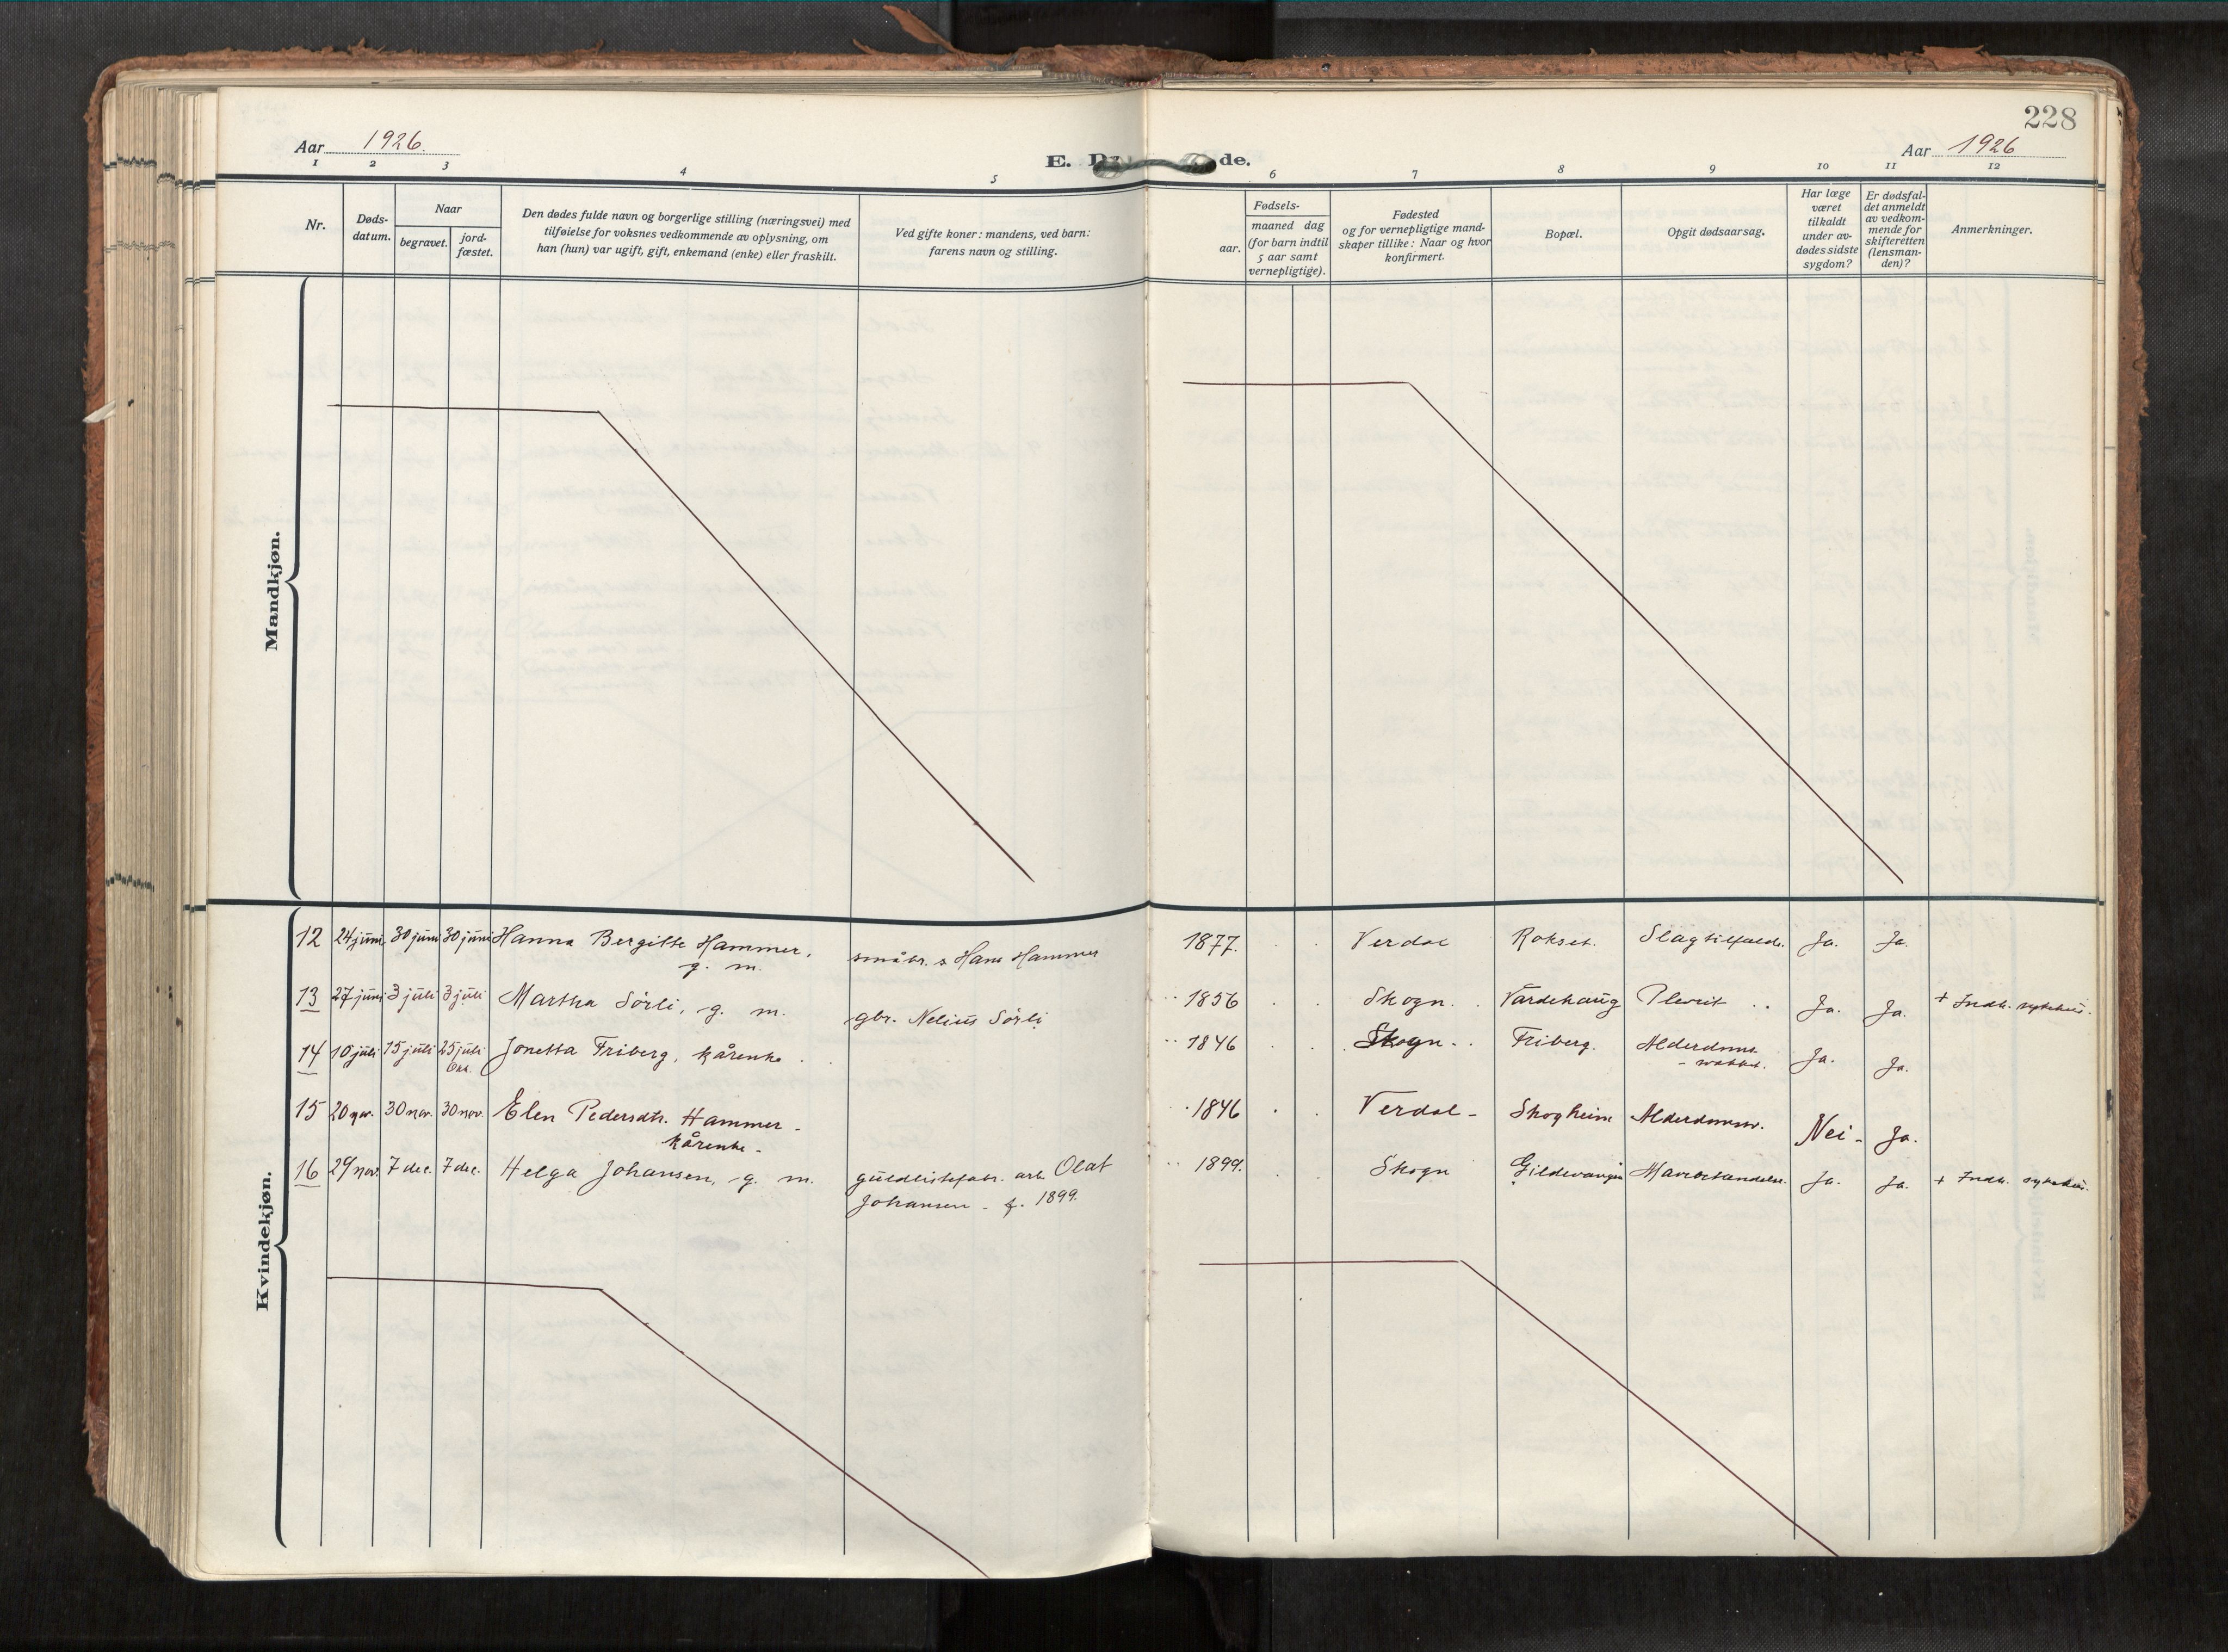 228
Aar 1926.
E. D
de.
Aar 1926
1 2 3 4 5 6 7 8 9 10 11 12
Nr.
Døds-
datum.
Naar
begravet.
jord-
fæstet.
Den dødes fulde navn og borgerlige stilling (næringsvei) med
tilføielse for voksnes vedkommende av oplysning, om
han (hun) var ugift, gift, enkemand (enke) eller fraskilt.
Ved gifte koner: mandens, ved barn:
farens navn og stilling.
Fødsels-
aar.
maaned dag
(for barn indtil
5 aar samt
vernepligtige).
Fødested
og for vernepligtige mand-
skaper tillike: Naar og hvor
konfirmert.
Bopæl.
Opgit dødsaarsag.
Har læge
været
tilkaldt
under av-
dødes sidste
sygdom?
Er dødsfal-
det anmeldt
av vedkom-
mende for
skifteretten
(lensman-
den)?
Anmerkninger.
Mandkjøn.
Kvindekjøn.
12 24 juni 30 juni 30 juni Hanna Bergitte Hammer, småbr. s Hans Hammer 1877. Verdal Rokset. Slagtilfæld. Ja. Ja.
g. m.
13 27 juni 3 juli 3 juli Martha Sörli, g. m. gbr. Nelius Sörli 1856 Skogn. Vardehaug Plevrit Ja. Ja. + Indh. sykehus.
14 10 juli 15 juli 25 juli Jonetta Friberg, kårenke. 1846 Skogn. Friberg. Alderdoms- Ja. Ja.
15 20 nov. 30 nov. 30 nov. Elen Pedersdtr. Hammer - 1846 Verdal - Skogheim Alderdomssv. Nei - Ja.
kårenke -
16 29 nov. 7 dec. 7 dec. Helga Johansen, g. m. guldlistefabr. arb. Olaf 1899. Skogn Gildevangen Ja. Ja. + Indh. sykehus.
Johansen - f. 1899.